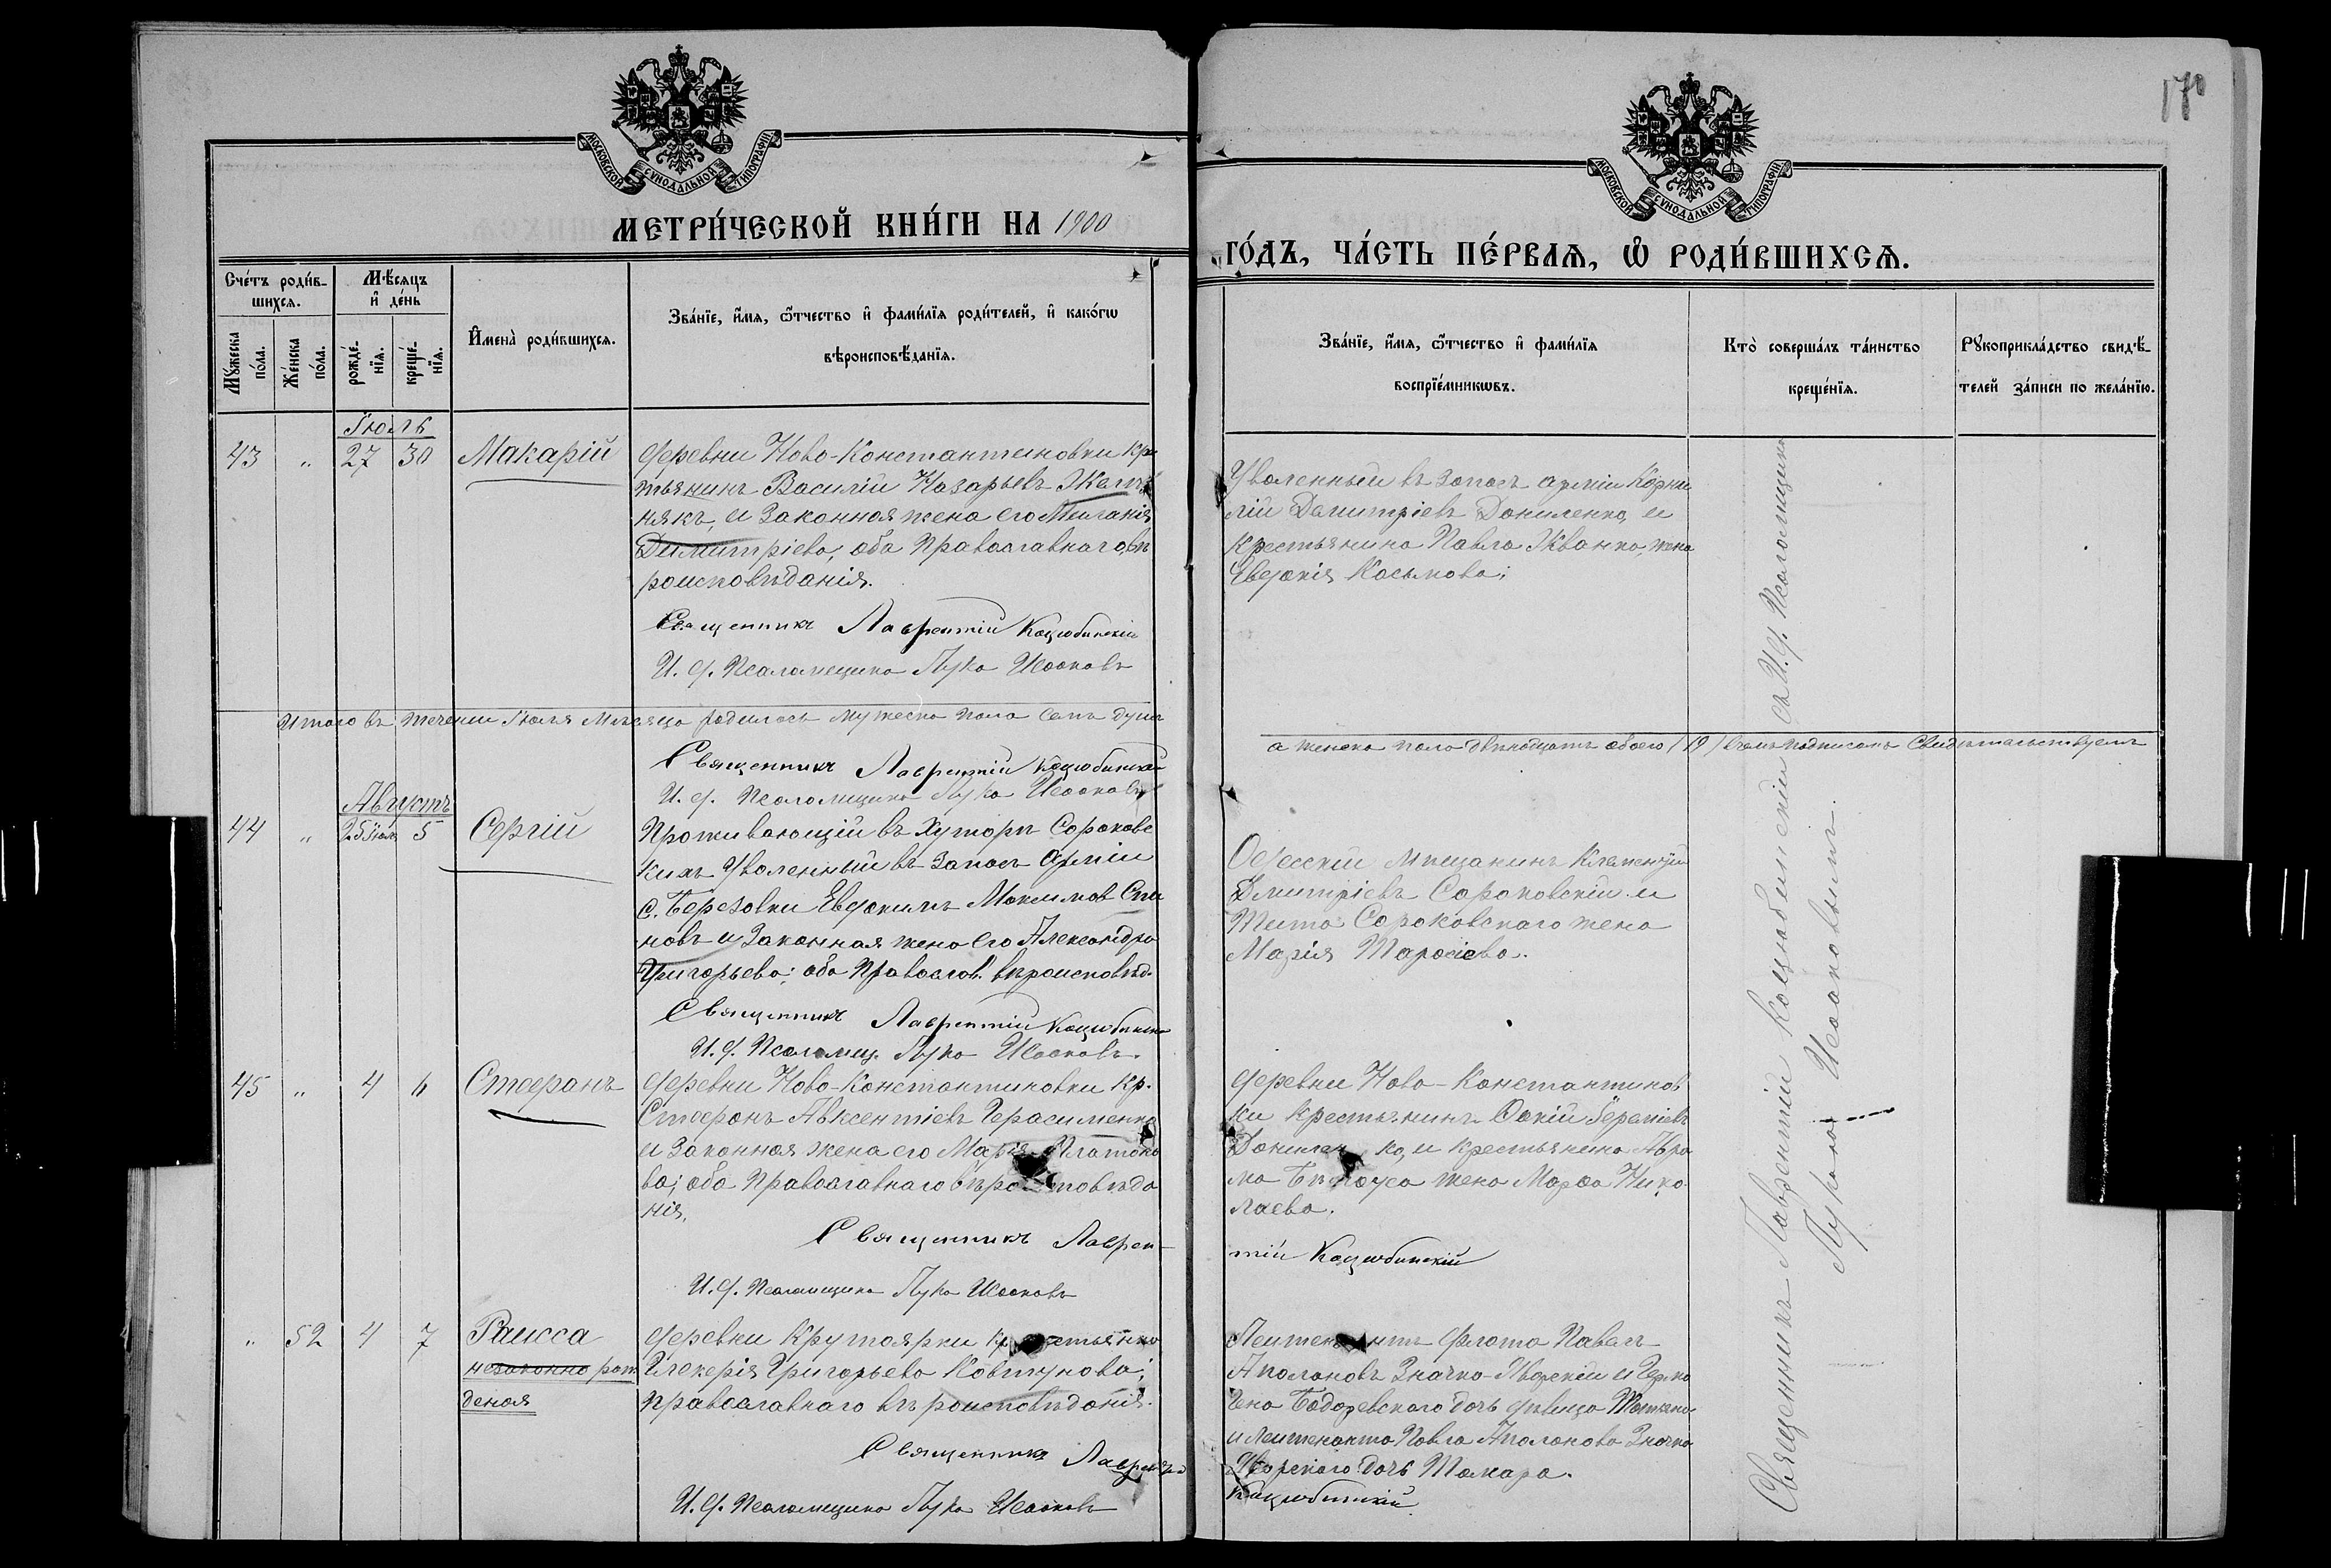 170
МОСКОВСКОЙ СѴНОДАЛЬНОЙ ТИПОГРАФІИ
МОСКОВСКОЙ СѴНОДАЛЬНОЙ ТИПОГРАФІИ
МЕТРИ́ЧЕСКОЙ КНИ́ГИ НА 1900
ГО́ДЪ, ЧА́СТЬ ПЕ́РВАѦ, Ѡ҆ РОДИ́ВШИХСѦ.
Сче́тъ роди́в-
шихся.
Мѣ́сяцъ
и҆ де́нь
Мꙋ́жеска
по́ла.
Же́нска
по́ла.
рожде́-
нїѧ.
креще́-
нїѧ.
И҆мена̀ роди́вшихсѧ.
Зва́нїе, и҆́мѧ, ѻ҆́тчество и҆ фами́лїѧ роди́телей, и҆ како́гѡ
вѣроисповѣ́данїѧ.
Зва́нїе, и҆́мѧ, ѻ҆́тчество и҆ фами́лїѧ
воспрїе́мникѡвъ.
Кто̀ соверша́лъ та́инство
креще́нїѧ.
Рꙋкоприкла́дство свидѣ́-
телей за́писи по жела́нїю.
Іюль
43 „ 27 30 Макарій
деревни Ново-Константиновки кре
тьянинъ Василій Назарьевъ
някъ, и законная жена его Меланія
Димитріева, оба православнаго вѣ
роисповѣданія.
Священникъ Лаврентій Коцюбинскій
И. д. Псаломщика Лука Исаковъ
Уволенный въ запасъ арміи Корни
лій Димитріевъ Даниленко, и
крестьянина Павла Жванка жена
Евдокія Косьмова;
Итого въ теченіи Іюля мѣсяца родилось мужеска пола семь душъ
а женска пола двѣнадцать обоего (19) въ чемъ подписомъ свидѣтельствуемъ
Священникъ Лаврентій Коцюбинскій
И. д. Псаломщика Лука Исаковъ
Августъ
44 „ 25 Іюл. 5 Сергій
Проживающій въ хуторѣ Сороковс
кихъ уволенный въ запасъ арміи
с. Березовки Евдокимъ Максимов
новъ и законная жена его Александра
Григорьева; оба православ. вѣроисповѣд.
Священникъ Лаврентій Коцюбинскій
И. д. Псаломщ. Лука Исаковъ.
Одесскій мѣщанинъ Климентій
Дмитріевъ Сороковскій и
Тита Сороковскаго жена
Марія Тарасіева.
45 „ 4 6 Стефанъ
деревни Ново-Константиновки кр.
Стефанъ Авксентіевъ Герасименко
и законная жена его Марія Платоно
ва; оба православнаго вѣроисповѣда
нія.
Священникъ Лаврен-
тій Коцюбинскій
И. д. Псаломщика Лука Исаковъ
деревни Ново-Константинов
ки крестьянинъ Ѳокій Іереміевъ
Даниленко, и крестьянина Авра
ма Бѣлоуса жена Марѳа Нико
лаева.
„ 52 4 7 Раисса
незаконно рож
деная
деревни Крутоярки крестьянка
Гликерія Григорьева Ковтунова;
православнаго вѣроисповѣданія.
Священникъ Лаврентій
Коцюбинскій
И. д. Псаломщика Лука Исаковъ
Лейтенантъ флота Павелъ
Аполоновъ Значко-Яворскій и
Бодоревскаго дочь дѣвица
и лейтенанта Павла Аполонова Значко
Яворскаго дочь Тамара.
Священникъ Лаврентій Коцюбинскій съ И. д. Псаломщика
Лукою Исаковымъ.